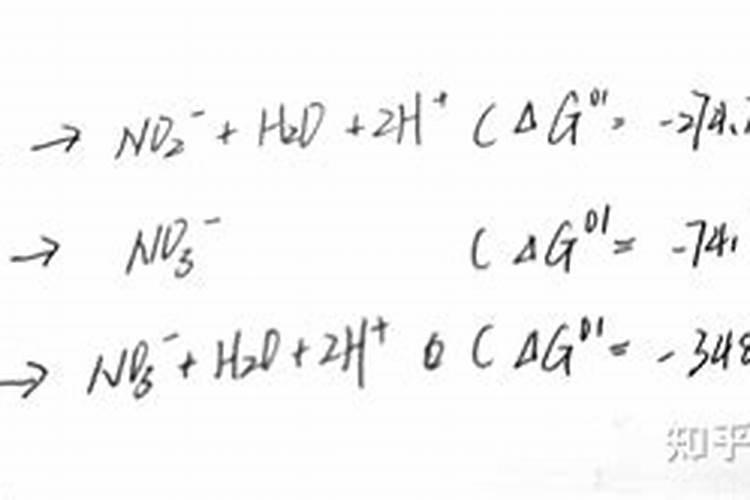 → NO₂⁻ + H₂O + 2H⁺ ( ΔG⁰' = -274.
→ NO₃⁻ ( ΔG⁰' = -74.
→ NO₃⁻ + H₂O + 2H⁺ ( ΔG⁰' = -348
知乎